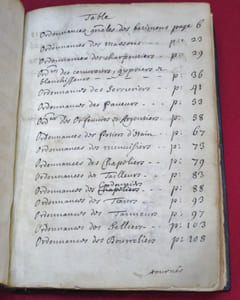 Table
Ordonnances gnâles des besongnes page 6
Ordonnances des massons p: 23
Ordonnances des charpentiers p: 29
Ordces des couvreurs gypsiers et
blanchisseurs p: 36
Ordonnances des serruriers p: 41
Ordonnances des paveurs p: 53
Ordces des Orfeuvres et Argentiers p: 58
Ordonnances des Potiers d'Etain p: 67
Ordonnances des menuisiers p: 73
Ordonnances des Chapoliers p: 79
Ordonnances des Tailleurs p: 83
Ordonnances des p: 88
Ordonnances des p: 93
Ordonnances des Tanneurs p: 97
Ordonnances des Selliers p: 103
Ordonnances des Bourreliers p: 108
tournés